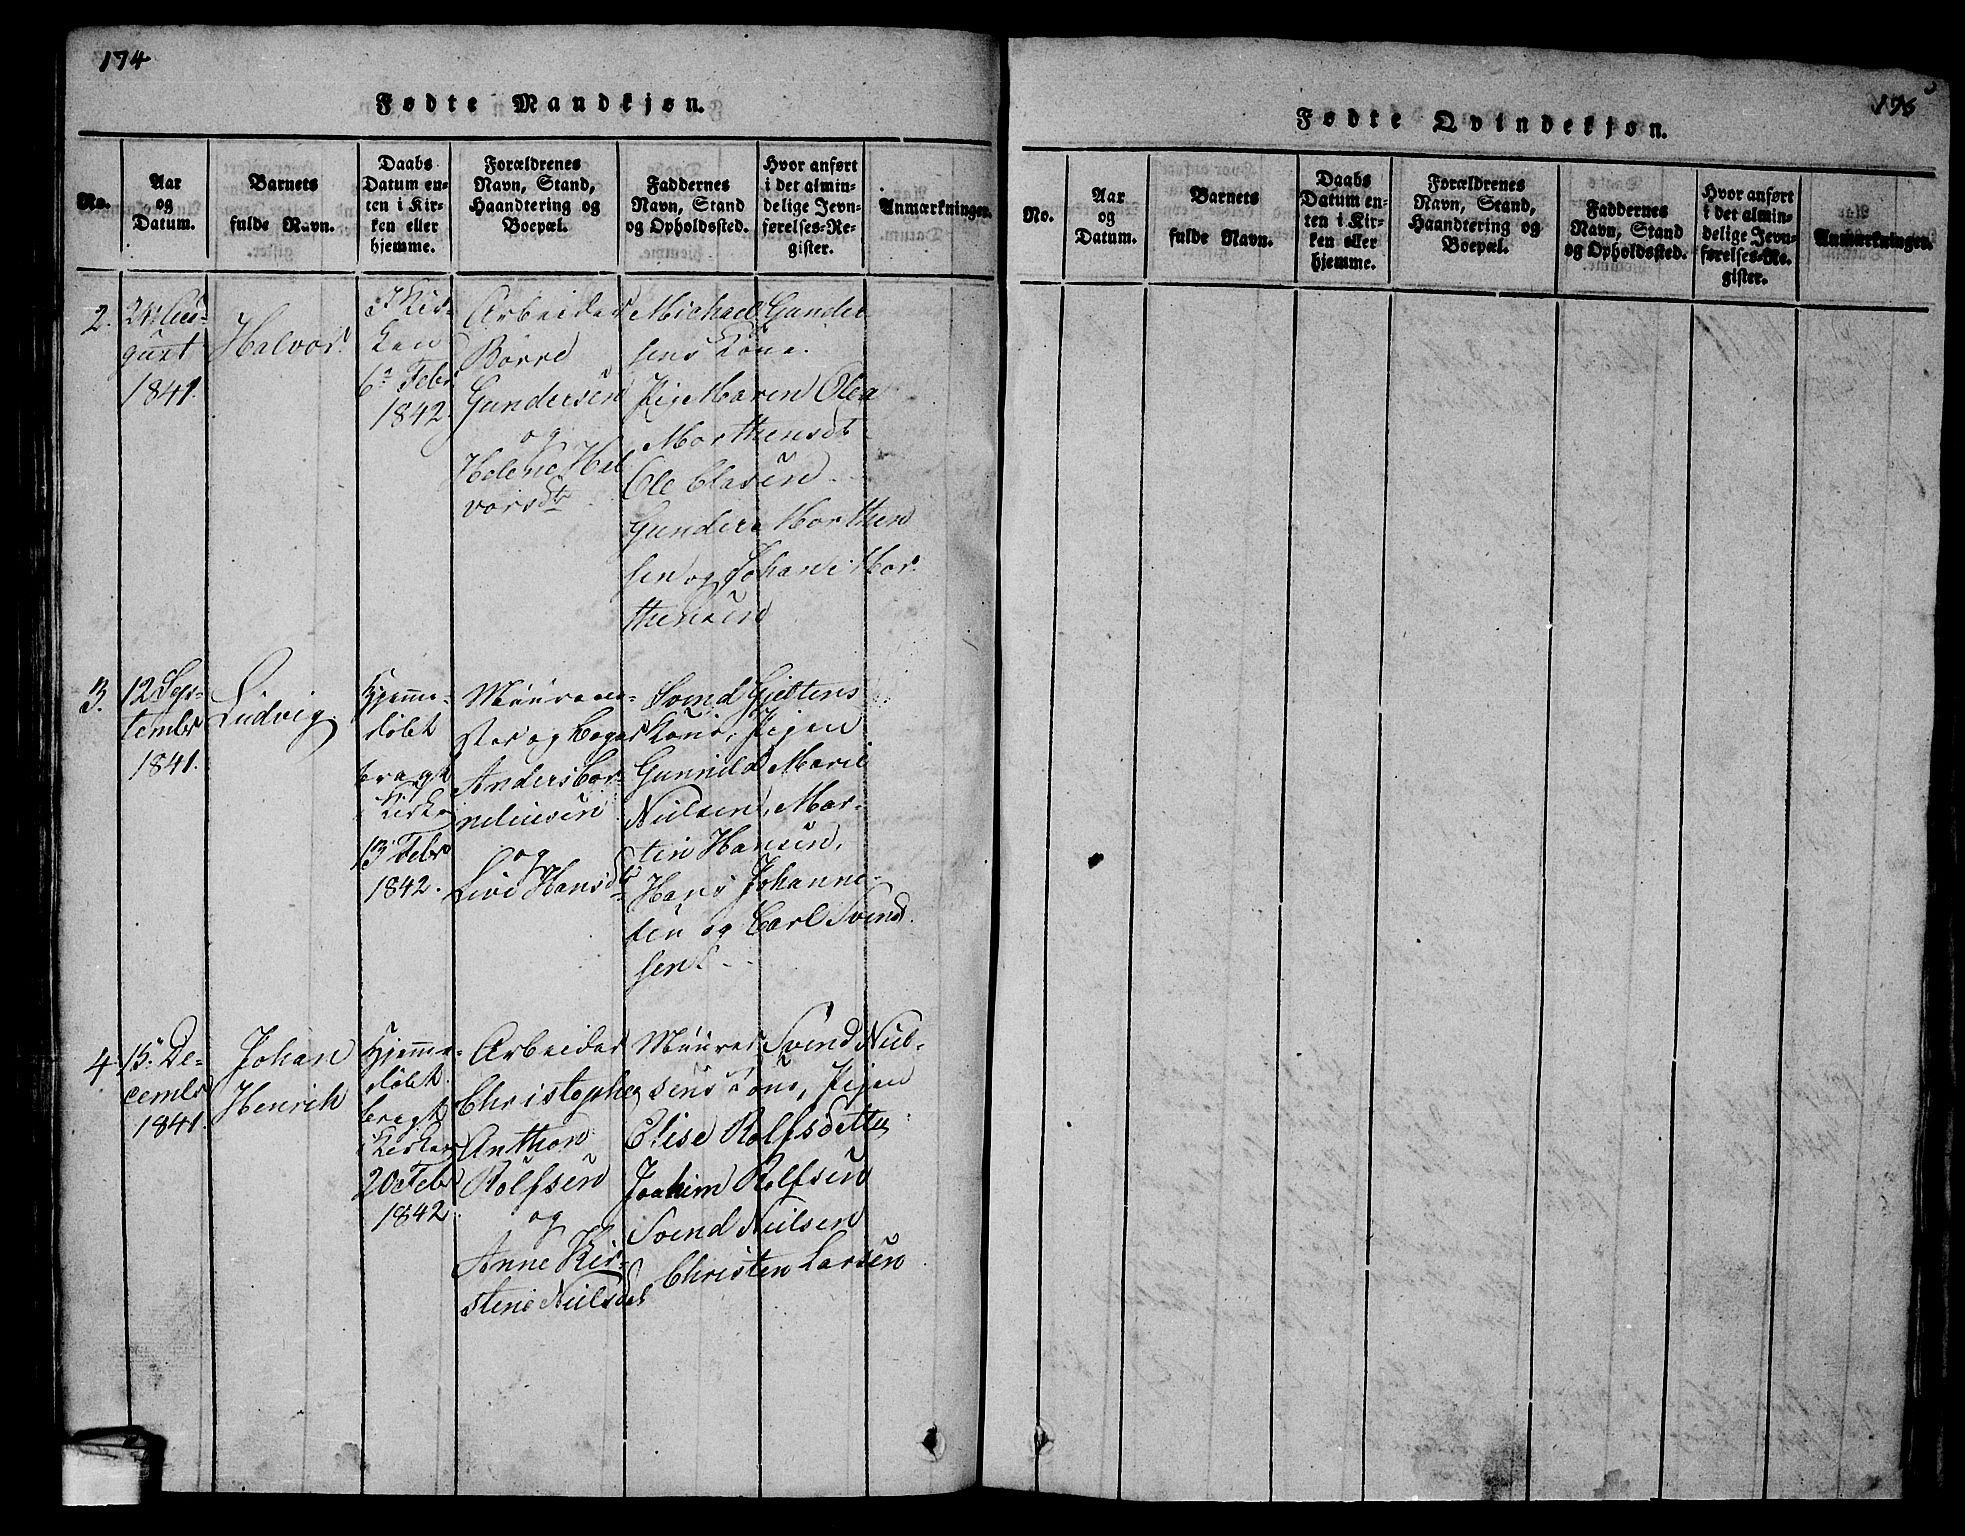 174
Fødte Mandkjøn.
No.
Aar
og
Datum.
Barnets
fulde Navn.
Daabs
Datum en-
ten i Kir-
ken eller
hjemme.
Forældrenes
Navn, Stand,
Haandtering og
Boepæl.
Faddernes
Navn, Stand
og Opholdssted.
Hvor anført
i det almin-
delige Jevn-
førelses-Re-
gister.
Anmærkninger.
2.
24 Au-
gust
1841.
Halvor.
I Kir-
ken
6te Febr
1842.
Arbeider
Börre
Gundersen
og
Helene Hal
vorsdtr
Michael Gunder
sens Kone.
Pige Maren Olea
Morthensdt
Ole Clasen
Gunder Morthen
sen og Johan Mor
thensen
3.
12 Sep-
tembr
1841.
Ludvig
Hjemme-
døbt
bragt
i Kirken
13 Febr
1842.
Muurme-
ster og Bager
Anders Cor-
neliusen
og
Live Hansdtr
Svend Gjeltens
Kone, Pigen
Gunnild Marie
Nielsen, Mar-
tin Hansen,
Hans Johanne-
sen og Carl Svend
sen
4.
15 De-
cembr
1841.
Johan
Henrich
Hjemme-
døbt
bragt
i Kirken
20 Febr
1842.
Arbeider
Christopher
Anthon
Rolfsen
og
Anne Kir-
stene Nielsdt
Muurer Svend Niel-
sens Kone, Pigen
Elise Rolfsdatter
Joachim Rolfsen
Svend Nielsen
Christen Larsen
175
Fødte Qvindekjøn.
No.
Aar
og
Datum.
Barnets
fulde Navn.
Daabs
Datum en-
ten i Kir-
ken eller
hjemme.
Forældrenes
Navn, Stand,
Haandtering og
Boepæl.
Faddernes
Navn, Stand
og Opholdssted.
Hvor anført
i det almin-
delige Jevn-
førelses-Re-
gister.
Anmærkninger.